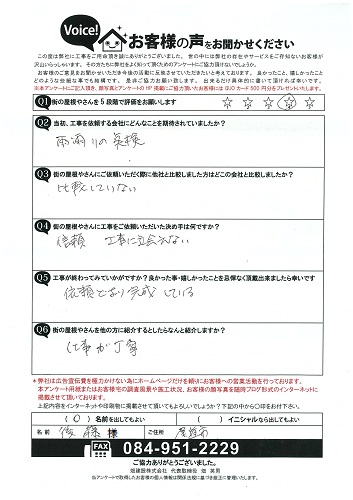 Voice!
お客様の声をお聞かせください
この度は弊社に工事をご用命頂き誠にありがとうございました。 世の中には弊社の存在やサービスをご存知ないお客様が
沢山いらっしゃいます。 その方たちに弊社をよく知って頂くためのアンケートにご協力頂けないでしょうか。
お客様のご意見をお聞かせいただき今後の活動に反映させていただきたいと考えております。 良かったこと、嬉しかったこと
どのような些細な事でも結構です。 是非ご協力お願い致します。 出来るだけ具体的に書いて頂ければ幸いです。
※本アンケートにご記入頂き、顔写真とアンケートのHP掲載にご協力頂いたお客様にはQUOカード500円分をプレゼントいたします。
Q1 街の屋根やさんを5段階で評価をお願いします ☆ ☆ ☆ ☆ ☆
Q2 当初、工事を依頼する会社にどんなことを期待されていましたか?
雨漏りの点検
Q3 街の屋根やさんにご依頼いただく際に他社と比較しました方はどこの会社と比較しましたか?
比較していない
Q4 街の屋根やさんに工事をご依頼いただいた決め手は何ですか?
信頼 工事に立会えない
Q5 工事が終わってみていかがですか?良かった事・嬉しかったことを忌憚なく頂戴出来ましたら幸いです
依頼どおり完成している
Q6 街の屋根やさんを他の方に紹介するとしたらなんと紹介しますか?
仕事が丁寧
※弊社は広告宣伝費を極力かけない為にホームページだけを頼りにお客様への営業活動を行っております。
本アンケート用紙またはお客様宅の調査風景や施工状況、お客様の顔写真を随時ブログ形式のインターネットに
掲載させて頂いております。
上記内容をインターネットや印刷物に掲載させて頂いてもよろしいでしょうか?下記の中から〇印をお付下さい。
(〇)名前を出してもよい ( )イニシャルなら出してもよい
名前 後藤 様 ご住所 尾道市
FAX 084-951-2229
ご協力ありがとうございました。
畑建設株式会社 代表取締役 畑 英男
当アンケートで取得したお客様の個人情報は関係法規に基づき適正に管理いたします。